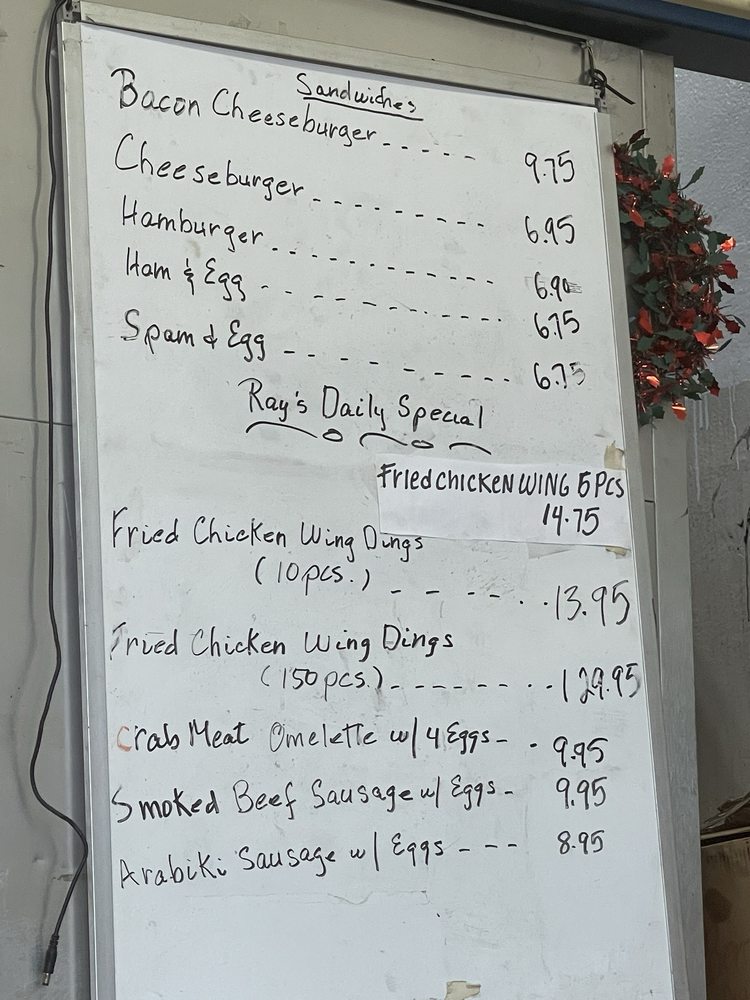 Sandwiches
Bacon Cheeseburger ----- 9.75
Cheeseburger --------- 6.95
Hamburger ------------ 6.90
Ham & Egg ----------- 6.75
Spam & Egg ---------- 6.75
Ray's Daily Special
Fried CHICKEN WING 5 PCS
14.75
Fried Chicken Wing Dings
(10 pcs.) ----- 13.95
Fried Chicken Wing Dings
(150 pcs.) --------- 129.95
Crab Meat Omelette w/ 4 Eggs -- 9.95
Smoked Beef Sausage w/ Eggs - 9.95
Arabiki Sausage w/ Eggs --- 8.95